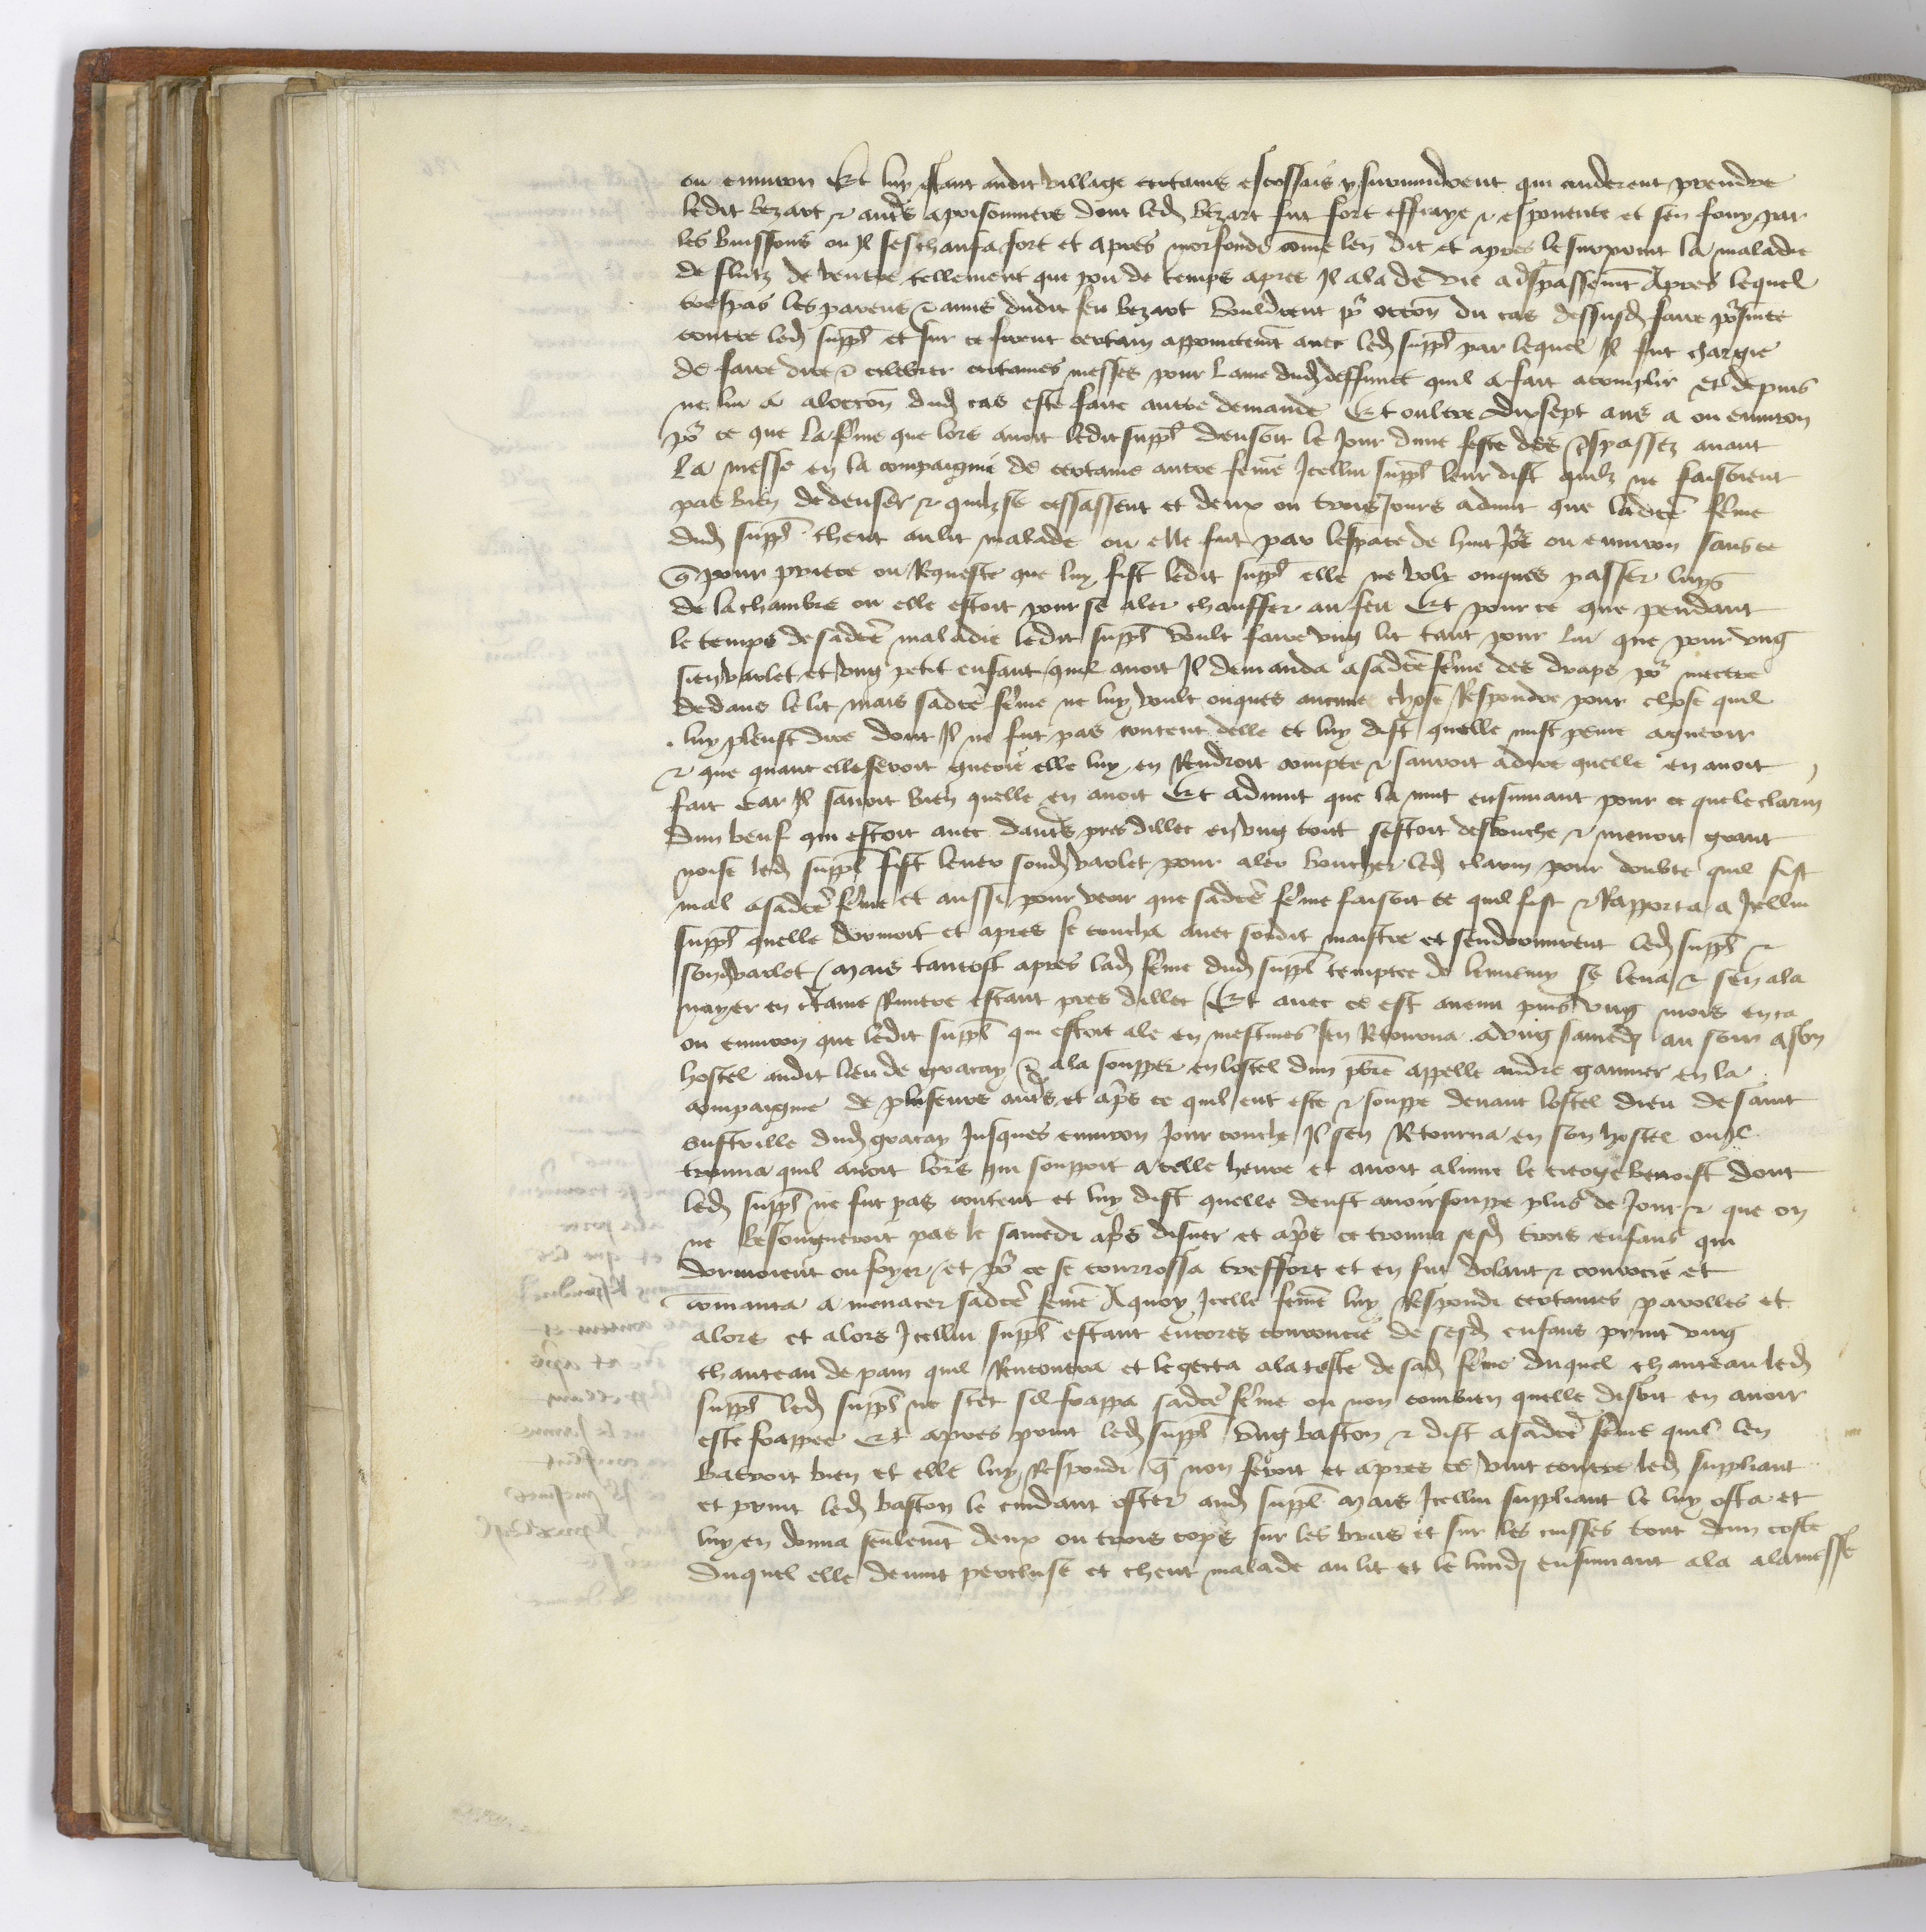 ou environ Et luy estant audit village certains escossais y survindrent qui cuiderent prendre
ledit bezart & autres aprisonniers dont led bezart fut fort effraye & espouente et sen fouy par
les buissons ou Il seschaufa fort et apres morfondi come len dit et apres le surprint la maladie
de flutz de ventre tellement que pou de temps apres Il ala de vie a trespassemt Apres lequel
trespas les parens & amis dudit feu bezart vouldrent pr occon du cas dessusd faire porsuite
contre led suppl et sur ce firent certain appoinctemt avec led suppl par lequel Il fut chargie
de faire dire & celebrer certaines messes pour lame dud deffunct quil a fait acomplir Et depuis
ne lui a aloccon dud cas este faite autre demande Et oultre dixsept ans a ou environ
pr ce que la feme que lors avoit ledit suppl densoit le Jour dune feste des trespassez avant
la messe en la compaignie de certaine autre feme Icellui suppl leur dist quilz ne faisoient
pas bien de denser & quilz se cessassent et deux ou trois Jours advint que ladcte feme
dud suppl cheut aulit malade ou elle fut par lespace de huit Jrs ou environ sans ce
q pour priere ou Requeste que luy fist ledit suppl elle ne volt onques passer luys
de la chambre ou elle estoit pour se aler chauffer au feu Et pour ce que pendant
le temps de sadcte maladie ledit suppl voult faire ung lit tant pour lui que pour ung
sien varlet et ung petit enfant quil avoit Il demanda asadcte feme des draps pr mectre
dedans le lit mais sadcte feme ne luy voult onques aucune chose Respondre pour chose quil
luy pleust dire dont Il ne fut pas content delle et luy dist quelle mist peine agueoir
& que quant elle seroit guerie elle luy en Rendroit compte & sauroit adire quelle en avoit
fait Car Il savoit bien quelle en avoit Et advint que la nuit ensuivant pour ce que le clarin
dun beuf qui estoit avec dautres pres dillec en ung toit sestoit desbouche & menoit grant
noise led suppl fist lever sond varlet pour aler boucher led clarin pour doubte quil fist
mal asadcte feme et aussi pour veoir que sadcte feme faisoit ce quil fist & Rapporta a Icellui
suppl quelle dormoit et apres se coucha avec sondit maistre et sendormirent led suppl &
sond varlet Mais tantost apres lad feme dud suppl temptee de lennemy se leva & sen ala
nayer en ctaine Riviere estant pres dillec Et avec ce est avenu puis ung mois en ca
ou environ que ledit suppl qui estoit ale en mestives sen Retourna adung samedj au soir a son
hostel audit lieu de gracay & ala soupper en lostel dun pbre appelle andre garnier en la
compaignie de pluseurs autres et apres ce quil eut este & souppe devant lostel dieu de saint
oustrille dud gracay Jusques environ Jour couche Il sen Retourna en son hostel ou Il
trouva quil avoit lors qui souppoit acelle heure et avoit alume le cierge benoist dont
led suppl ne fut pas content et luy dist quelle deust avoir souppe plus de Jour & que on
ne besoigneroit pas le samedi apres disner et apres ce trouva sesd trois enfans qui
dormoient ou foyer et pr ce se courrossa tresfort et en fut dolant & courocie et
comanca a menacer sadcte feme Aquoy Icelle feme luy Respondi certaines parolles et
alors et alors Icellui suppl estant encores courroucie de sesd enfans print ung
chanteau de pain quil Rencontra et le gecta ala teste de sad feme duquel chanteau led
suppl led suppl ne scet sil frappa sadcte feme ou non combien quelle disoit en avoir
este frappee Et apres print led suppl ung baston & dist asadcte feme quil len
batroit bien et elle luy Respondi q non feroit et apres ce vint contre led suppliant
et print led baston le cuidant oster aud suppl Mais Icellui suppliant le luy osta et
luy en donna seulemt deux ou trois cops sur les bras et sur les cuisses tout dun coste
Duquel elle devint percluse et cheut malade au lit et le lundj ensuivant ala alamesse